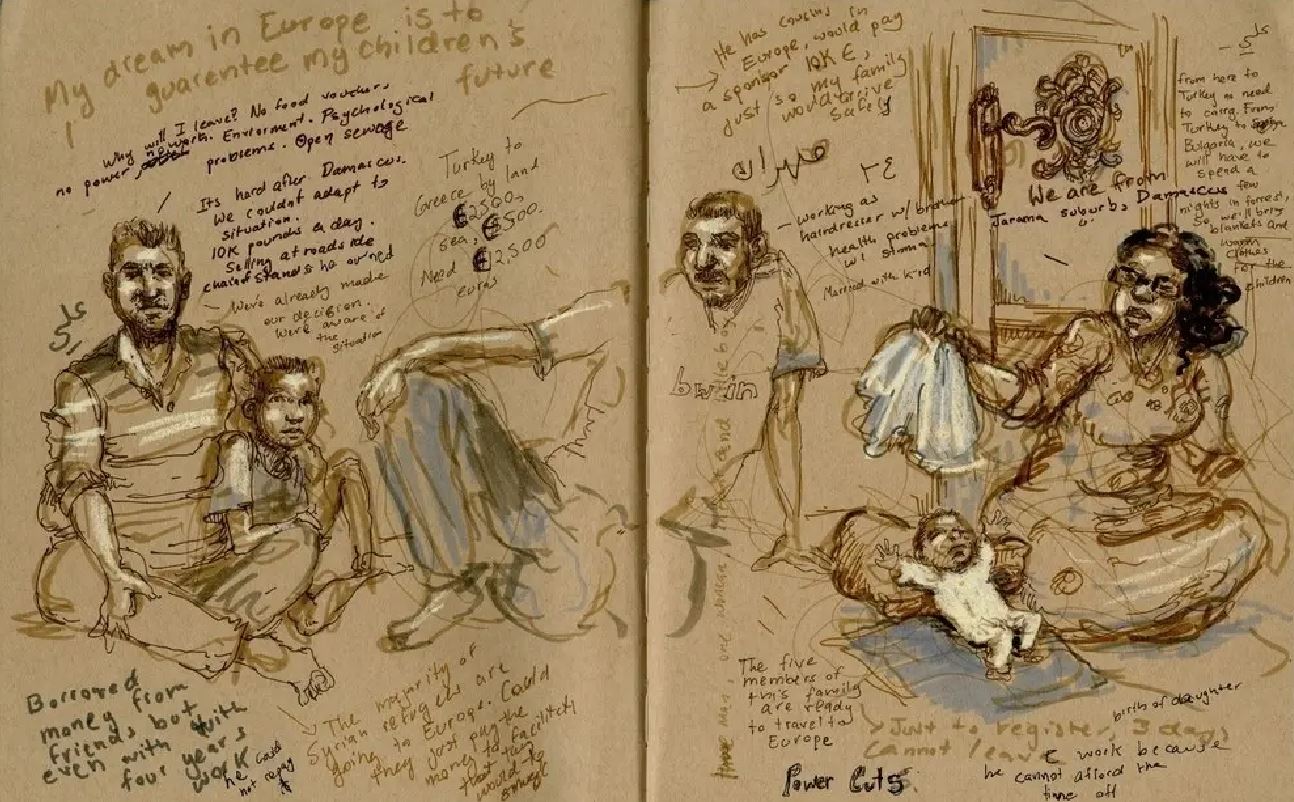 My dream in Europe is to
guarentee my children's
future
Why will I leave? No food vouchers
no power, no work. Envirorment. Psychological
problems. Open sewage
Its hard after Damascus.
We couldnt adapt to
situation.
10K pounds a day.
Selling at roadside
chain of stands he owned
We're already made
our decision.
We're aware of
the situation
علي
Turkey to
Greece by land
€2500,
sea, €500.
Need €12500
euros
Borrowed
money from
friends but
even with with
four years
work
he could
not repay
it
The majority of
Syrian refugees are
going to Europe. Could
they just pay the
money to
that they
would to
He has cousins in
Europe, would pay
a sponsor 10K €,
just so my family
would arrive
safely
٣٤
working as
hairdresser w/ brother
health problems
w/
Married with kid
bwin
one woman and
We are from
Jarama suburbs Damascus
علي
From here to
Turkey no need
to cring. From
Turkey to
Bulgaria, we
will have to
spend a
few
nights in forrest,
so we'll bring
blankets and
warm
clothes
for the
children
The five
members of
this family
are ready
to travel to
Europe
Power Cuts
Just to register, 3 days
birth of daughter
Cannot leave work because
he cannot afford the
time off